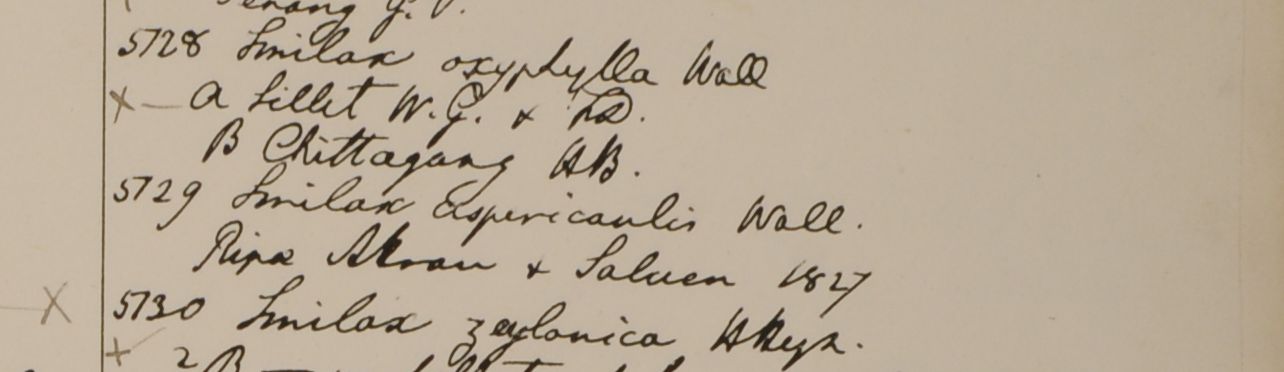 Penang G. P.
5728 Smilax oxyphylla Wall
X — a Sillet W.G. & FD.
B Chittagang HB.
5729 Smilax aspericaulis Wall.
Ripa Akran & Saluen 1827
X
5730 Smilax zeylanica HHeyn.
+ 2 B